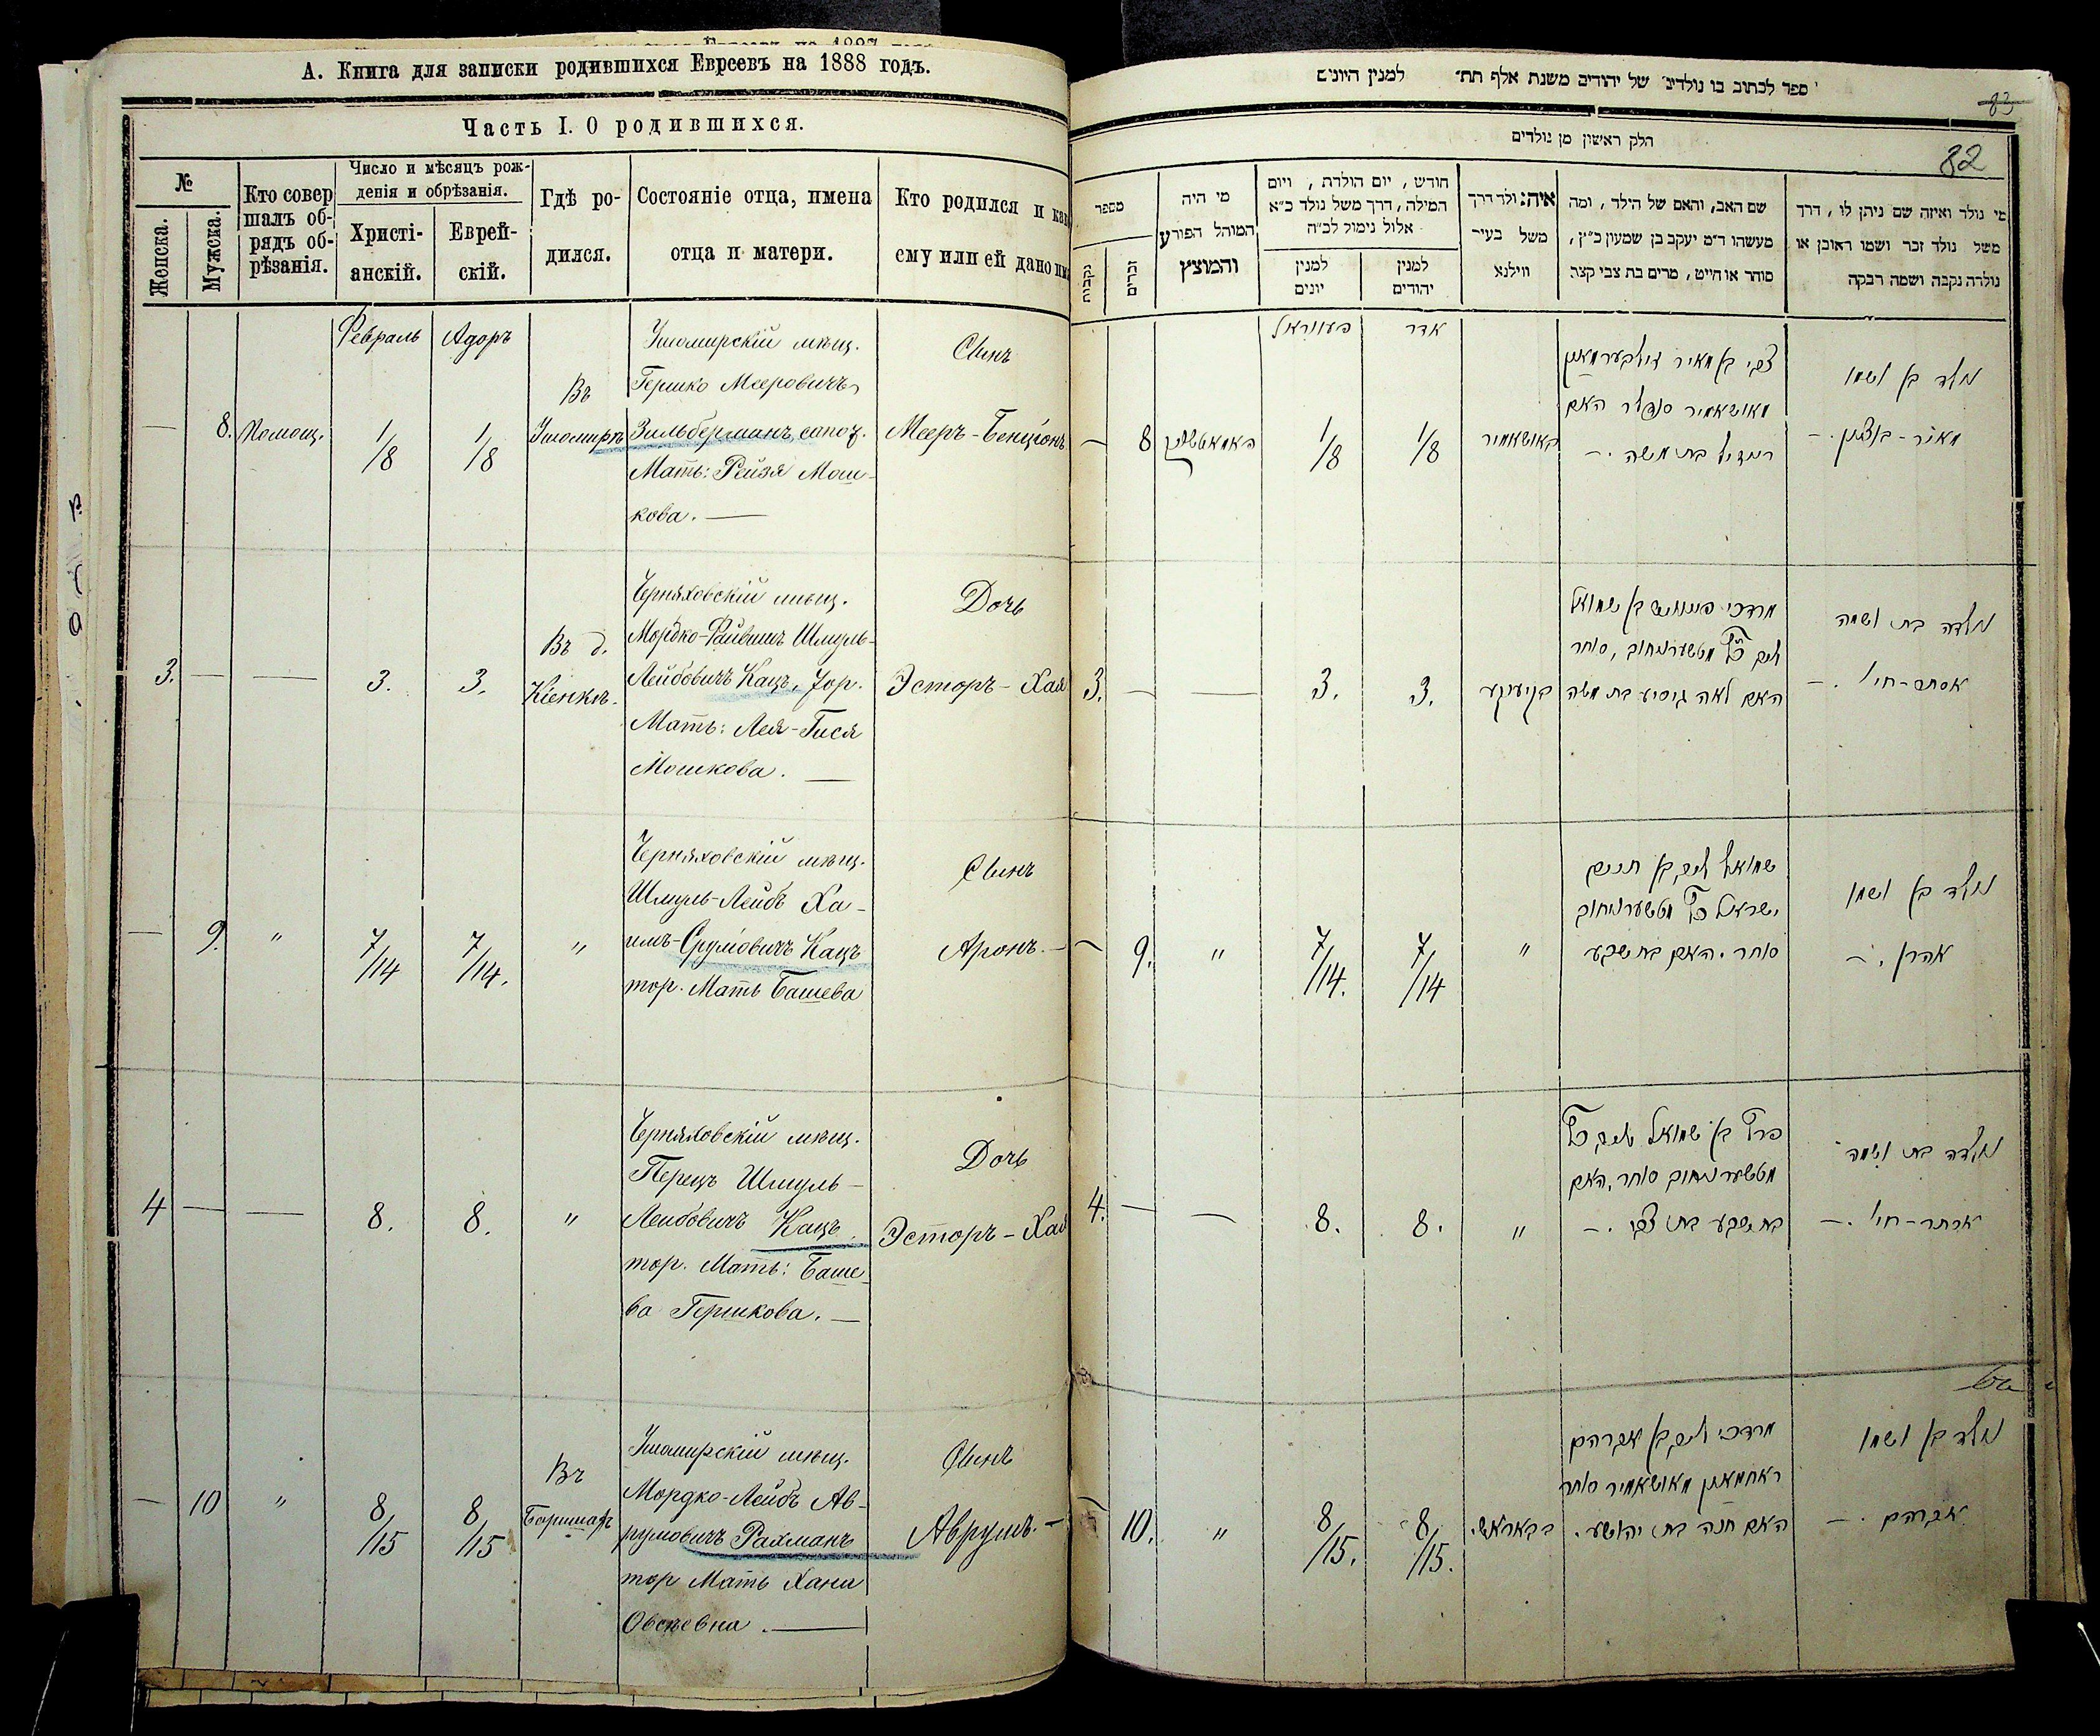 А. Книга для записки родившихся Евреевъ на 1888 годъ.
Часть I. О родившихся.
№
Женска.
Мужска.
Кто совер
шалъ об-
рядъ об-
рѣзанія.
Число и мѣсяцъ рож-
денія и обрѣзанія.
Христі-
анскій.
Еврей-
скій.
Гдѣ ро-
дился.
Состояніе отца, имена
отца и матери.
Кто родился и как
ему или ей дано им
Февраль
Адоръ
—
8.
Помощ.
1/8
1/8
Въ
Ушомирѣ
Ушомирскій мѣщ.
Гершко Мееровичъ
Зильберманъ, сапож.
Мать: Рейзя Мош-
кова. —
Сынъ
Мееръ-Бенціонъ
3.
—
—
3.
3.
Въ д.
Кіенкѣ.
Черняховскій мѣщ.
Мордко-Файвишъ Шмуль-
Лейбовичъ Кацъ, тор.
Мать: Лея-Гися
Мошкова. —
Дочь
Эстеръ-Хая
—
9.
"
7/14
7/14.
"
Черняховскій мѣщ.
Шмуль-Лейбъ Ха-
имъ-Сруловичъ Кацъ
тор. Мать Башева
Сынъ
Аронъ. —
4
—
—
8.
8.
"
Черняховскій мѣщ.
Перецъ Шмуль-
Лейбовичъ Кацъ.
тор. Мать: Баше-
ва Гершкова. —
Дочь
Эстеръ-Хая
—
10
"
8/15
8/15
Въ
Ушомирскій мѣщ.
Мордко-Лейбъ Ав-
румовичъ Рахманъ
тор Мать Хана
Овсѣевна. —
Сынъ
Аврумъ. —
ספר לכתוב בו נולדים של יהודים משנת אלף תת״ למנין היונים
83
חלק ראשון מן נולדים
82
מספר
נקבות
זכרים
מי היה
המוהל הפורע
והמוצץ
חודש, יום הולדת, ויום
המילה, דרך משל נולד כ״א
אלול נימול לכ״ח
למנין
יונים
למנין
יהודים
איה: ולד דרך
משל בעיר
ווילנא
שם האב, והאם של הילד, ומה
מעשהו ד״מ יעקב בן שמעון כ״ץ,
סוחר או חייט, מרים בת צבי קצר
מי נולד ואיזה שם ניתן לו, דרך
משל נולד זכר ושמו ראובן או
נולדה נקבה ושמה רבקה
פעווראל
אדר
—
8
1/8
1/8
באושאמיר
צבי בן מאיר זילבערמאן
מאושאמיר סנדלר האם
רייזיל בת משה. —
נולד בן ושמו
מאיר-בנציון. —
3.
—
—
3.
3.
מרדכי פייוויש בן שמואל
ליב כ״ץ מטשערניחוב, סוחר
האם לאה גיסיע בת משה
נולדה בת ושמה
אסתר-חי'. —
—
9.
"
7/14.
7/14
"
שמואל ליב בן חיים
ישראל כ״ץ מטשערניחוב
סוחר. האם בת שבע
נולד בן ושמו
אהרן. —
4.
—
—
8.
8.
"
פרץ בן שמואל ליב כ״ץ
מטשערניחוב סוחר, האם
בת שבע בת צבי. —
נולדה בת ושמה
אסתר-חי'. —
—
10.
"
8/15.
8/15.
מרדכי ליב בן אברהם
ראחמאן מאושאמיר סוחר
האם חנה בת יהושע.
נולד בן ושמו
אברהם. —